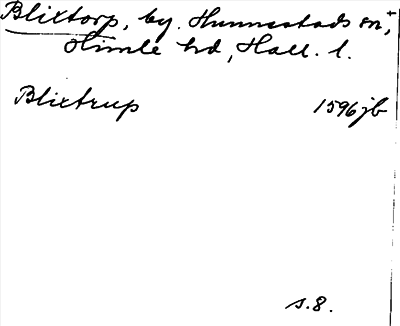 Blixtorp, by. Hunnestads sn,+
Himle hd, Hall. l.
Blixtrup 1596 jb
s. 8.